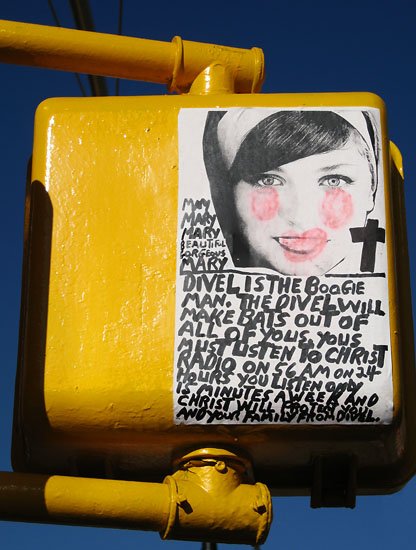 MARY
MARY
MARY
BEAUTIFUL
GORGEOUS
MARY
DIVEL IS THE BOOGIE
MAN. THE DIVEL WILL
MAKE BATS OUT OF
ALL OF YOUS. YOUS
MUST LISTEN TO CHRIST
RADIO ON 56 AM ON 24
HOURS YOU LISTEN ONLY
15 MINUTES A WEEK AND
CHRIST WILL PROTECT YOU
AND YOUR FAMILY FROM DIVEL.